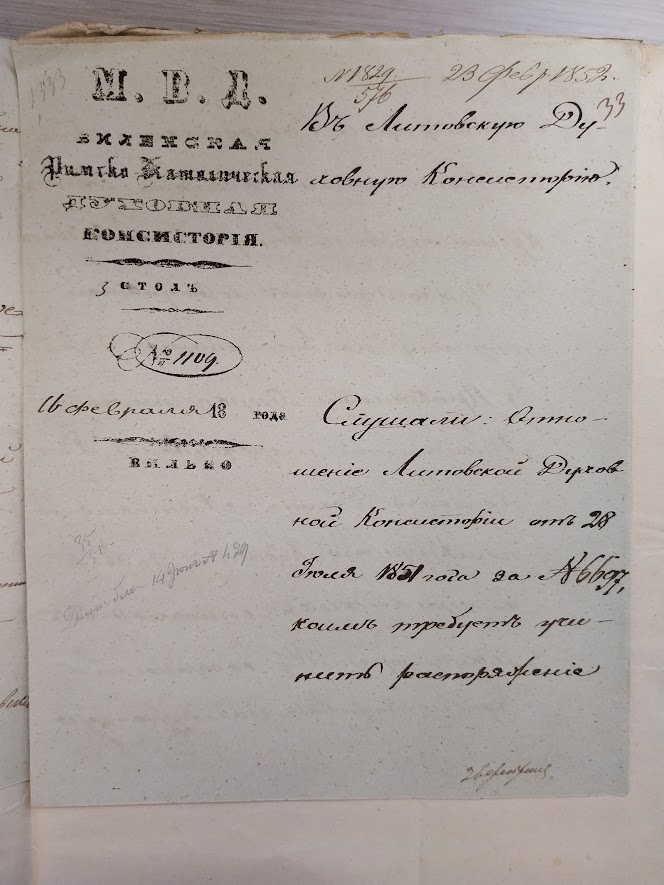 М. В. Д.
ВИЛЕНСКАЯ
Римско Католическая
ДУХОВНАЯ
КОНСИСТОРІЯ.
3 СТОЛЪ
№ 1109.
16 февраля 18 года
ВИЛЬНО
№ 1829
576
23 Февр 1852.
33
Въ Литовскую Ду-
ховную Консисторію.
Слушали: Отно-
шеніе Литовской Духов
ной Консисторіи отъ 28
Іюля 1851 года за № 6697,
коимъ требуетъ учи-
нить распоряженіе
14 № 429